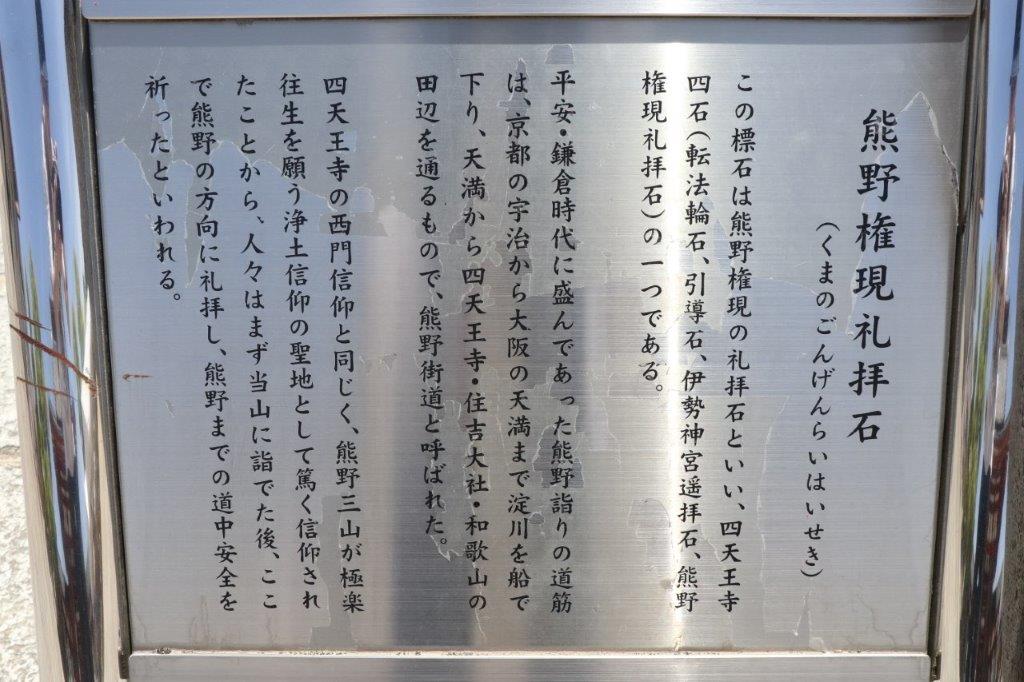 熊野権現礼拝石
（くまのごんげんらいはいせき）
この標石は熊野権現の礼拝石といい、四天王寺
四石（転法輪石、引導石、伊勢神宮遥拝石、熊野
権現礼拝石）の一つである。
平安・鎌倉時代に盛んであった熊野詣りの道筋
は、京都の宇治から大阪の天満まで淀川を船で
下り、天満から四天王寺・住吉大社・和歌山の
田辺を通るもので、熊野街道と呼ばれた。
四天王寺の西門信仰と同じく、熊野三山が極楽
往生を願う浄土信仰の聖地として篤く信仰され
たことから、人々はまず当山に詣でた後、ここ
で熊野の方向に礼拝し、熊野までの道中安全を
祈ったといわれる。